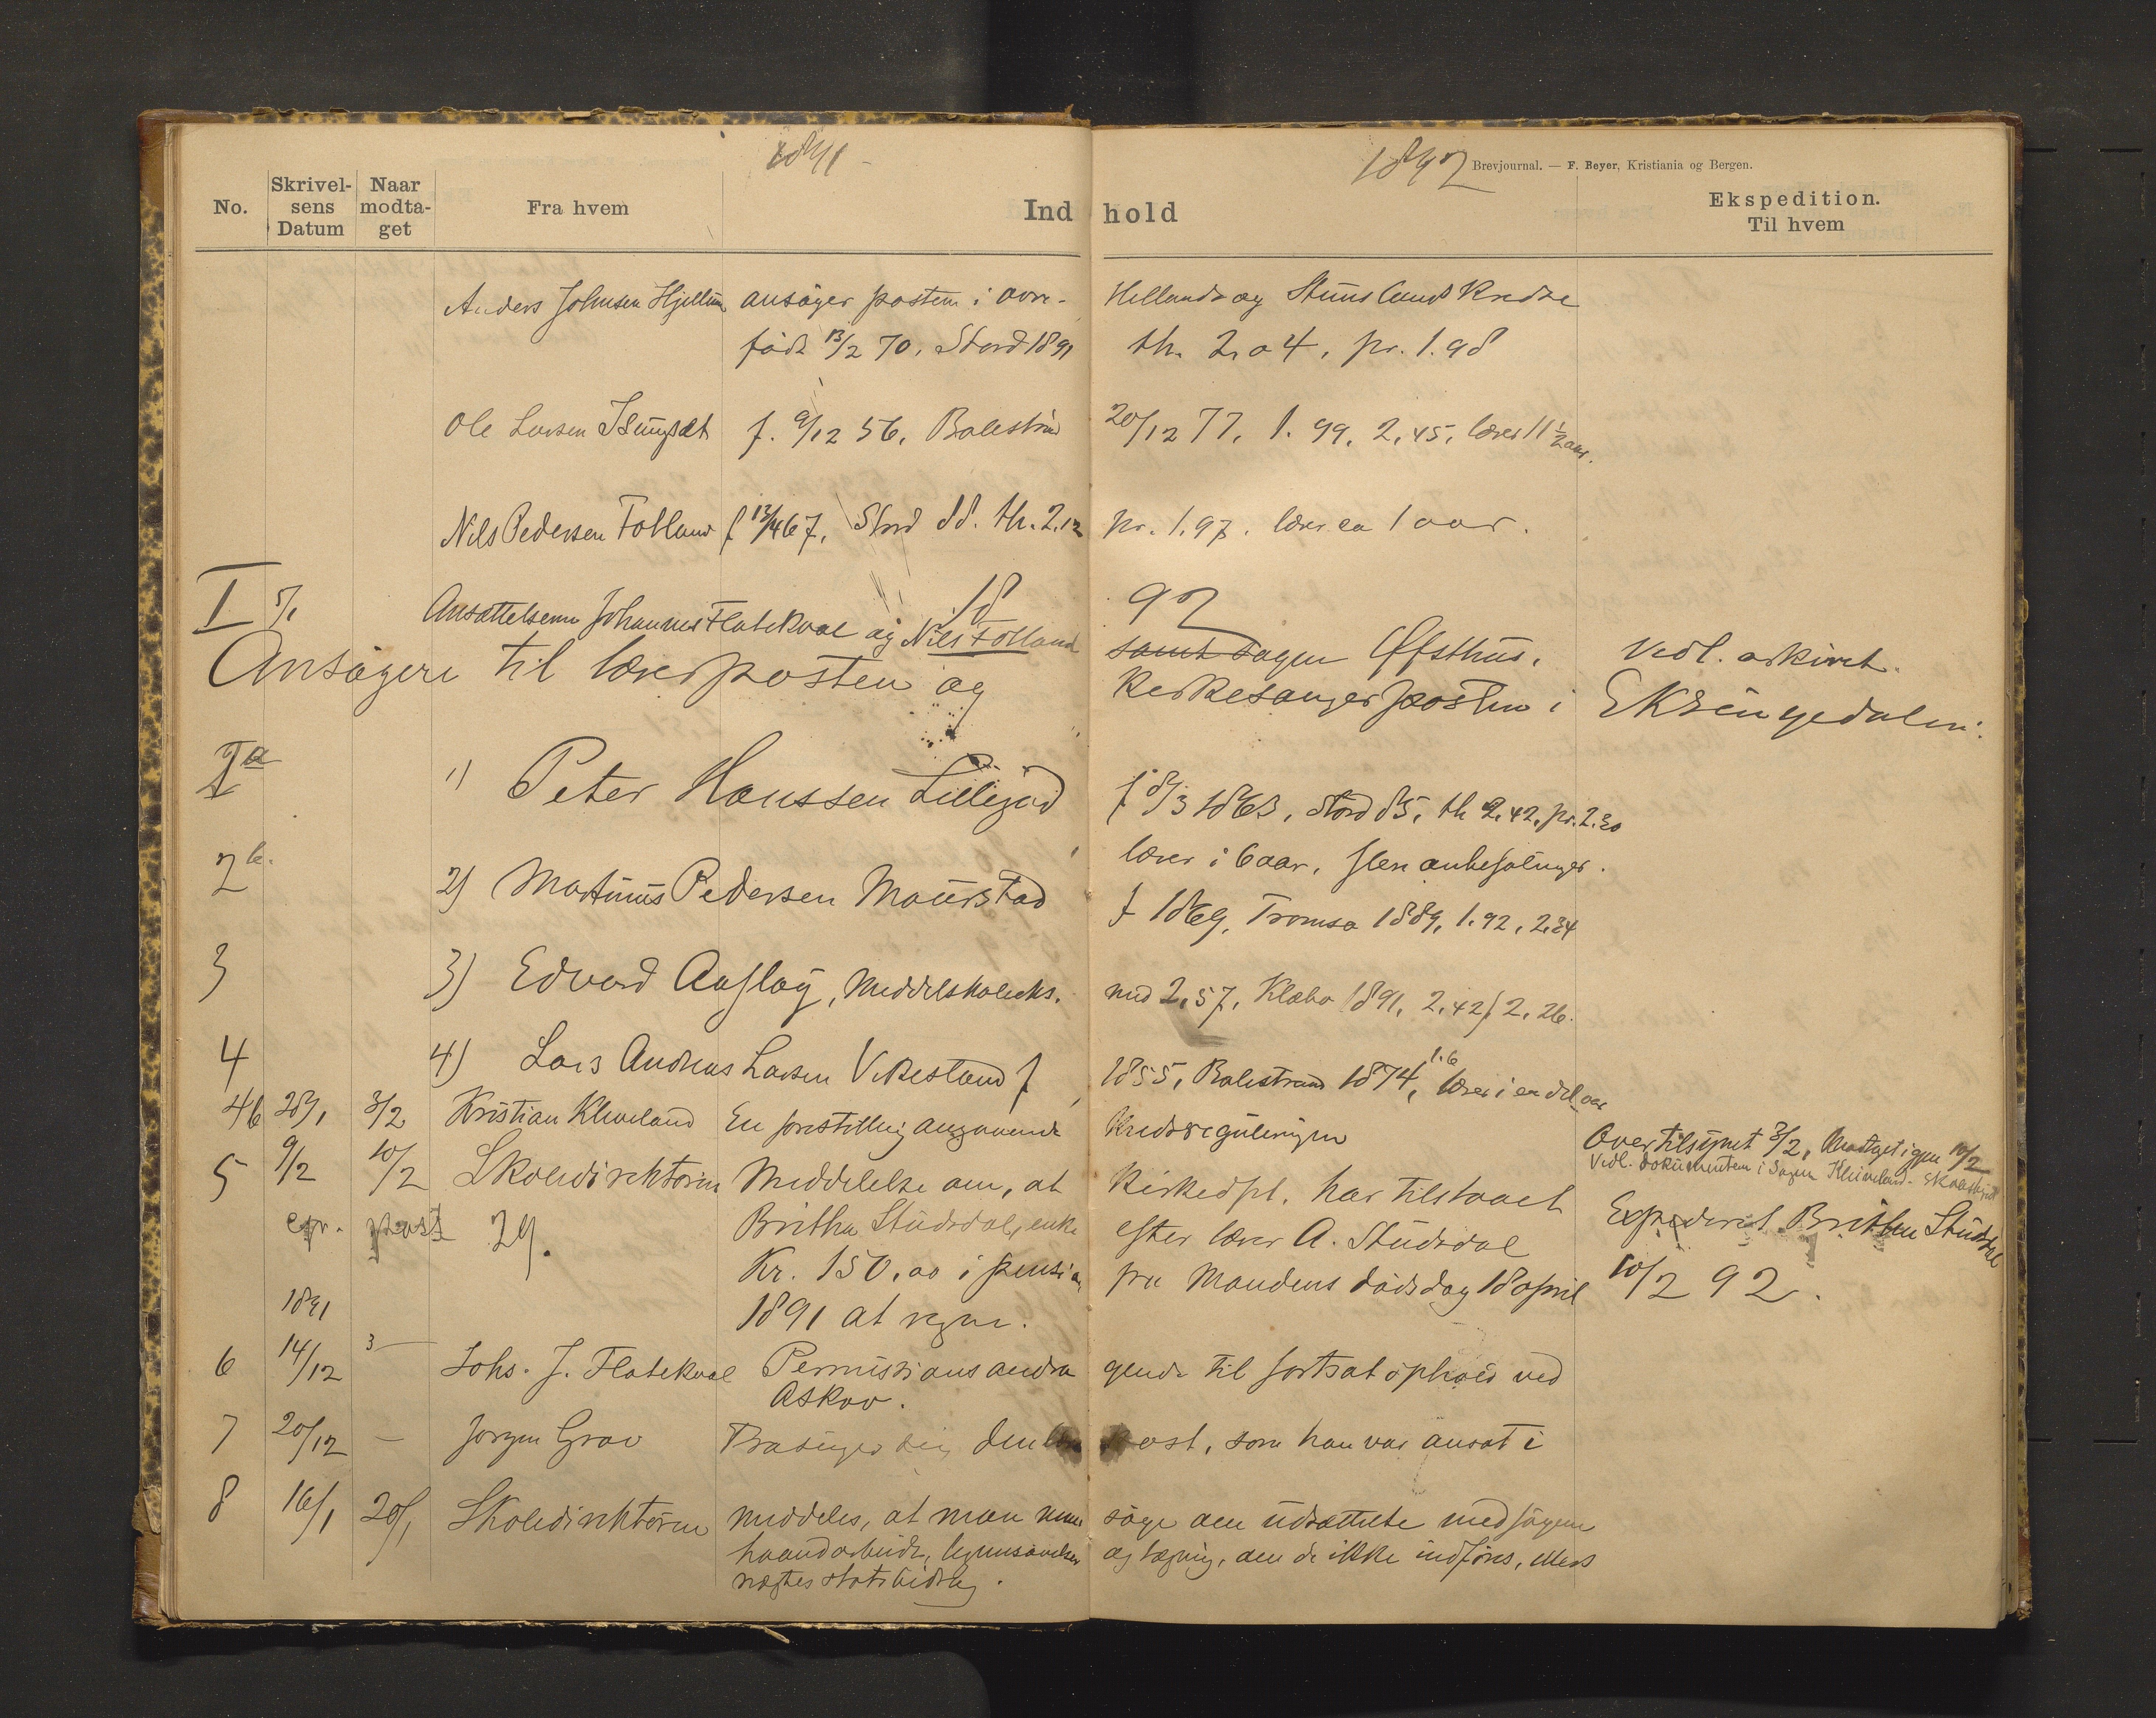 1891
1892
Brevjournal. — F. Beyer, Kristiania og Bergen.
No. Skrivelsens Datum Naar modtaget Fra hvem Indhold Ekspedition. Til hvem
Anders Johnsen ansøger posten i øvre- Hellands og Kredse
født 13/2 70. Stord 1891 th. 2.04, pr. 1.98
Ole Larsen f. 9/12 56, Balestrand 20/12 77, 1.99, 2,45, lærer 11 1/2 aar.
Nils Pedersen Folland f 13/4 67, Stord 88. th. 2.12 pr. 1.97. lærer ca 1 aar.
1892
I 5/1 Ansættelsen Johannes Flatekval og Nils Folland samt sagen Øfsthus. Vedl. arkivet.
Ansøgere til lærerposten og Kirkesangerposten i Eksingedalen.
Ia 1) Peter Hanssen Lillejord f 8/3 1863, Stord 85, th 2.42, pr. 2.30
lærer i 6 aar, flere anbefalinger.
2 b. 2) Martinus Pedersen Maurstad f 1869, Tromsø 1889, 1.92, 2.34
3 3) Edvard Aufløy, Middelskoleeks. med 2,57, Klæbo 1891, 2,42, 2,26.
4 4) Lars Andreas Larsen Vikestand f 1855, Balestrand 1874, 1.6 lærer i en del aar
4b 28/1 3/2 Kristian Kleiveland En forestilling angaaende Kredsreguleringen Overtilsynet 3/2, Modtaget igjen 10/2
Vedl. dokumenten i Sagen Kleiveland-
5 9/2 10/2 Skoledirektøren Meddelelse om, at Kirkedpt. har tilstaaet Expederet Britha Studsdal
epr. post 29. Britha Studsdal, enke efter lærer A. Studsdal 10/2 92.
Kr. 150,00 i pension fra Mandens dødsdag 18 april
1891 at regne.
1891
6 14/12 3 — Johs. J. Flatekval Permissionsandra gende til fortsat ophold ved
Askov.
7 20/12 — Jørgen Grav Frasiger sig den post, som han var ansat i
8 16/1 20/1 Skoledirektøren meddeles, at man maa søge om udsættelse med
haandarbeide, legemsøvelser og tegning, om de ikke indføres, ellers
nægtes statsbidrag.